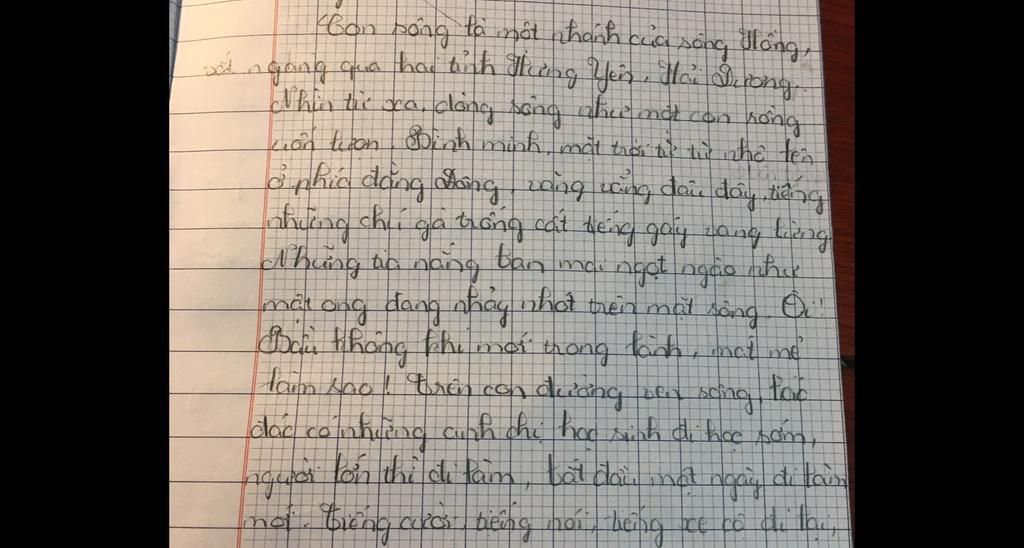 Con sông là một nhánh của sông Hồng,
ngang qua hai tỉnh Hưng Yên, Hải Dương.
Nhìn từ xa, dòng sông như một con rồng
uốn lượn. Bình minh, mặt trời từ từ nhô lên
ở phía đằng đông, văng vẳng đâu đây, tiếng
những chú gà trống cất tiếng gáy vang lừng
Những tia nắng ban mai ngọt ngào như
mật ong đang nhảy nhót trên mặt sông. Ôi!
Bầu không khí mới trong lành, mát mẻ
làm sao! Trên con đường ven sông, lác
đác có những anh chị học sinh đi học sớm,
người lớn thì đi làm, bắt đầu một ngày đi làm
mới. Tiếng cười, tiếng nói, tiếng xe cộ đi lại,